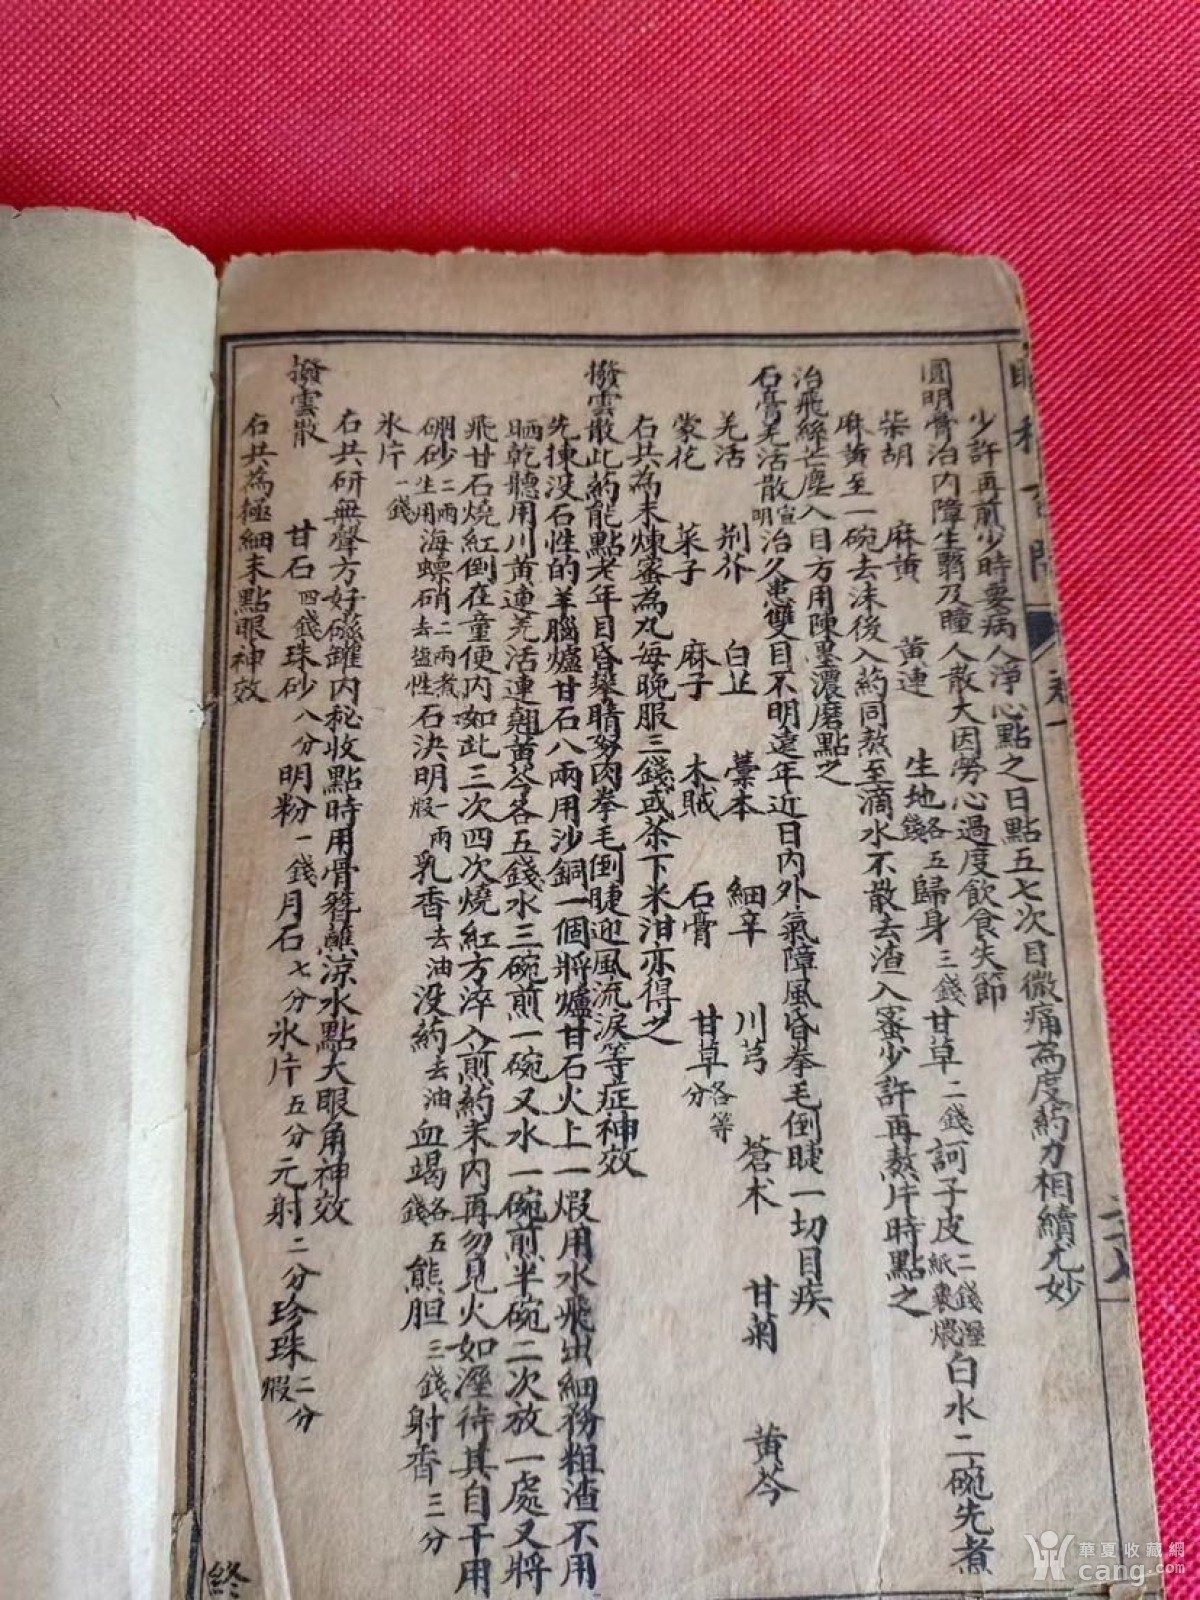 眼科
卷一
二八
少許再煎少時要病人淨心點之日點五七次目微痛為度葯力相續尤妙
圓明膏治內障生翳及瞳人散大因勞心過度飲食失節
柴胡 麻黄 黄連 生地各五錢歸身三錢甘草二錢訶子皮二錢溼紙裹煨白水二碗先煮
麻黄至一碗去沫後入葯同熬至滴水不散去渣入蜜少許再熬片時點之
治飛絲芒塵入目方用陳墨濃磨點之
石膏羌活散宣明治久患雙目不明遠年近日內外氣障風昏拳毛倒睫一切目疾
羌活 荆芥 白芷 藁本 細辛 川芎 蒼朮 甘菊 黄芩
蒙花 菜子 麻子 木賊 石膏 甘草各等分
右共為末煉蜜為丸每晚服三錢或茶下米泔亦得之
撥雲散此葯能點老年目昏攀睛努肉拳毛倒睫迎風流淚等症神效
先揀没石性的羊腦爐甘石八兩用沙銅一個將爐甘石火上一煆用水飛出細務粗渣不用
晒乾聽用川黄連羌活連翹黄芩各五錢水三碗煎一碗又水一碗煎半碗二次放一處又將
飛甘石燒紅倒在童便內如此三次四次燒紅方淬入煎葯末內再勿見火如溼待其自干用
硼砂二兩硇砂生用海螵硝二兩煮去盐性石決明一兩煆乳香去油没葯去油血竭各五錢熊胆三錢射香三分
氷片一錢
右共研無聲方好磁罐內秘收點時用骨簪蘸涼水點大眼角神效
撥雲散 甘石四錢珠砂八分明粉一錢月石七分氷片五分元射二分珍珠二分煆
右共為極細末點眼神效
終
華夏收藏網
cang.com